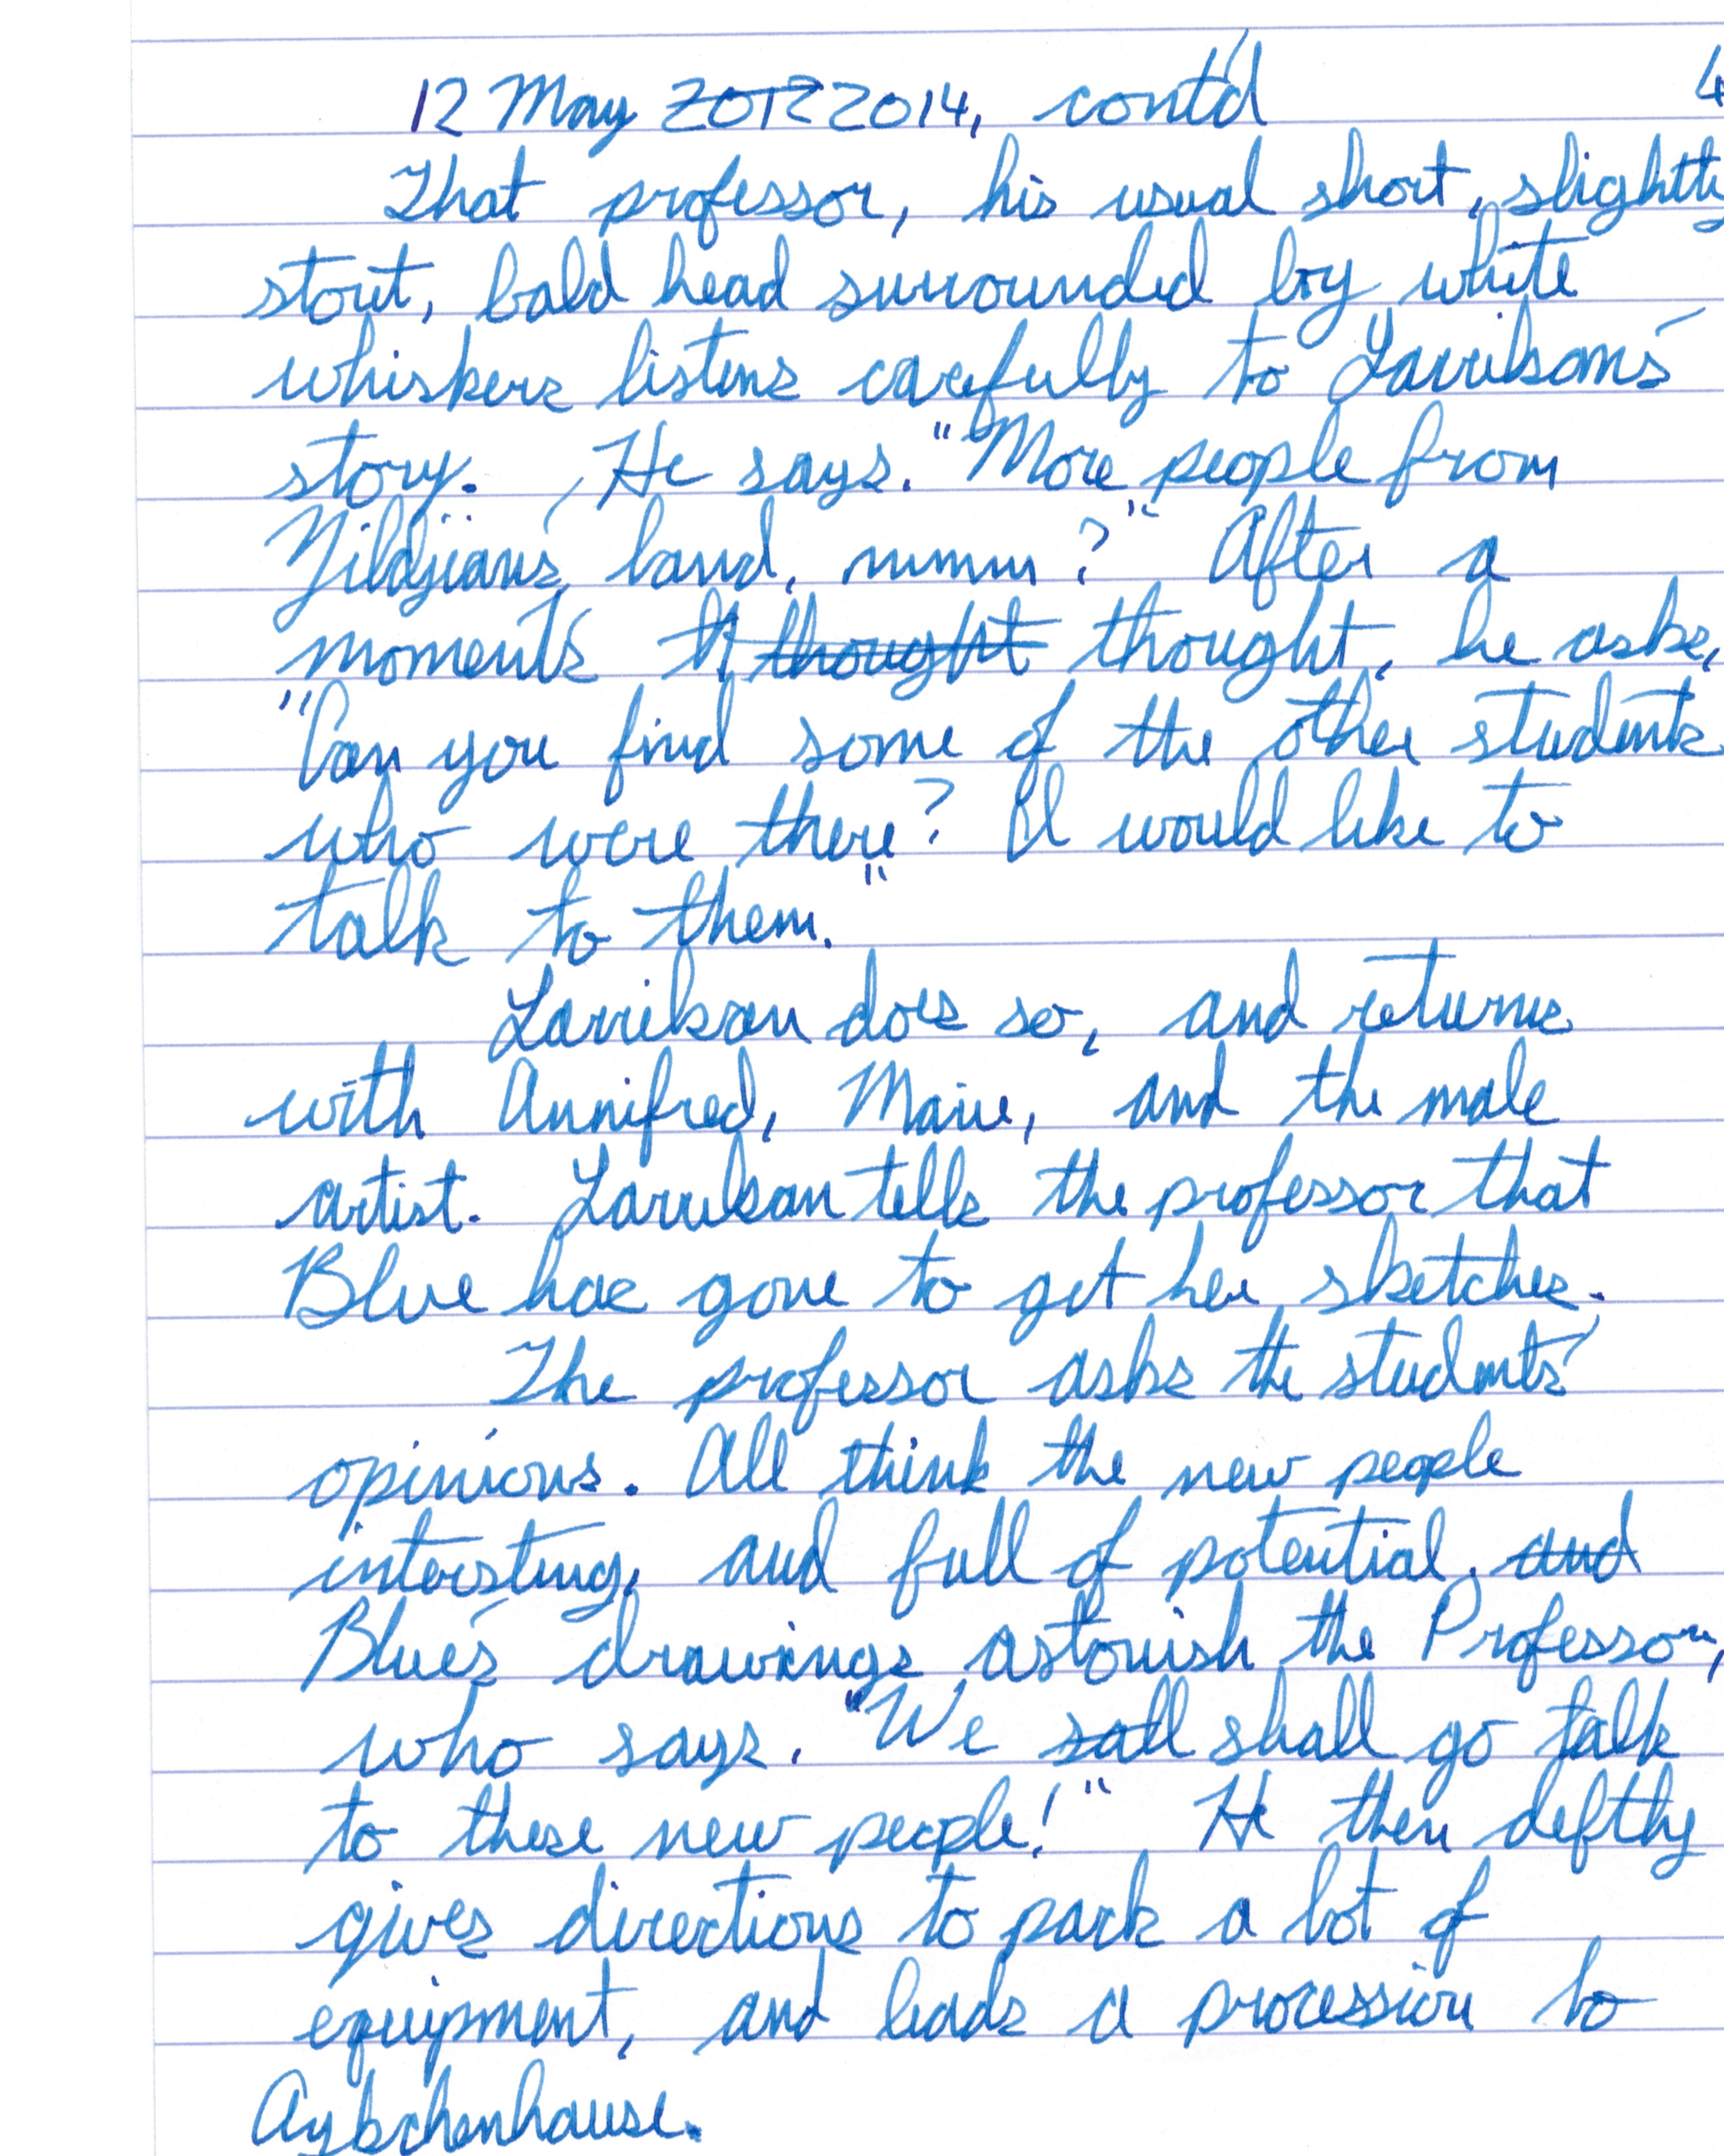 12 May 2012 2014, cont'd 4
That professor, his usual short, slightly
stout, bald head surrounded by white
whiskers listens carefully to Larrikson's
story. He says, "More people from
Yildjian's band, mmm?" After a
moment's th thought thought, he asks,
"Can you find some of the other students
who were there? I would like to
talk to them."
Larrikson does so, and returns
with Annifred, Marie, and the male
artist. Larrikson tells the professor that
Blue has gone to get her sketches.
The professor asks the students'
opinions. All think the new people
interesting, and full of potential, and
Blue's drawings astonish the Professor,
who says, "We sall shall go talk
to these new people!" He then deftly
gives directions to pack a lot of
equipment, and leads a procession to